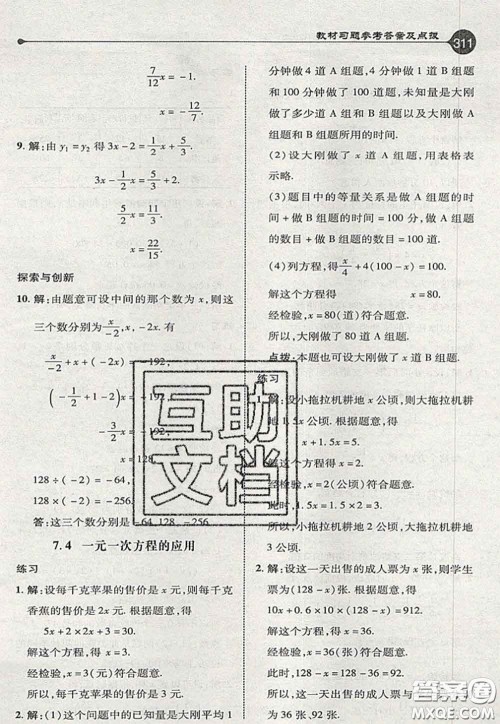 教材习题参考答案及点拨 311
7/12 x = -1.
x = -12/7.
9. 解:由 y₁=y₂ 得 3x-2=1/2 x+5/3.
3x-1/2 x=5/3+2.
5/2 x=11/3.
x=22/15.
探索与创新
10. 解:由题意可设中间的那个数为 x,则这
三个数分别为 x/-2,x,-2x. 有
x/-2+x+(-2x)=-192,
(-1/2+1-2)x=-192,
-3/2 x=-192,
x=128.
128÷(-2)=-64,
128×(-2)=-256.
答:这三个数分别是-64,128,-256.
7.4 一元一次方程的应用
练习
1. 解:设每千克苹果的售价是 x 元,则每千克
香蕉的售价是 2x 元. 根据题意,得
5x+2×2x+3=30.
解这个方程,得 x=3.
经检验,x=3(元)符合题意.
所以,每千克苹果的售价是 3 元.
2. 解:(1)这个问题中的已知量是大刚平均 1
分钟做 4 道 A 组题,4 分钟做 1 道 B 组题
和 100 分钟做了 100 题,未知量是大刚
做了多少道 A 组和 B 组题以及大刚做 A
组题和 B 组题所用的时间.
(2)设大刚做了 x 道 A 组题,用表格表
示略.
(3)题目中的等量关系是做 A 组题的时
间+做 B 组题的时间=100 分钟,做 A
组题的数目+做 B 组题的数目=100.
(4)列方程,得x/4+4(100-x)=100.
解这个方程,得 x=80.
经检验,x=80(道)符合题意.
所以,大刚做了 80 道 A 组题.
点拨:本题也可设大刚做了 x 道 B 组题.
练习
解:设小拖拉机耕地 x 公顷,则大拖拉机耕
地 1.5x 公顷. 根据题意,得
x+1.5x=5.
解这个方程,得 x=2.
经检验,x=2(公顷)符合题意. 1.5x=3.
所以,小拖拉机耕地 2 公顷,大拖拉机耕地
3 公顷.
2. 解:设这一天出售的成人票为 x 张,则学生
票为(128-x)张. 根据题意,得
10x+0.6×10×(128-x)=912.
解这个方程,得 x=36.
经检验,x=36(张)符合题意.
此时,128-x=128-36=92.
所以,这一天出售的成人票与学生票分别
为 36 张,92 张.
互助
文档
答案圈
MXQE.COM